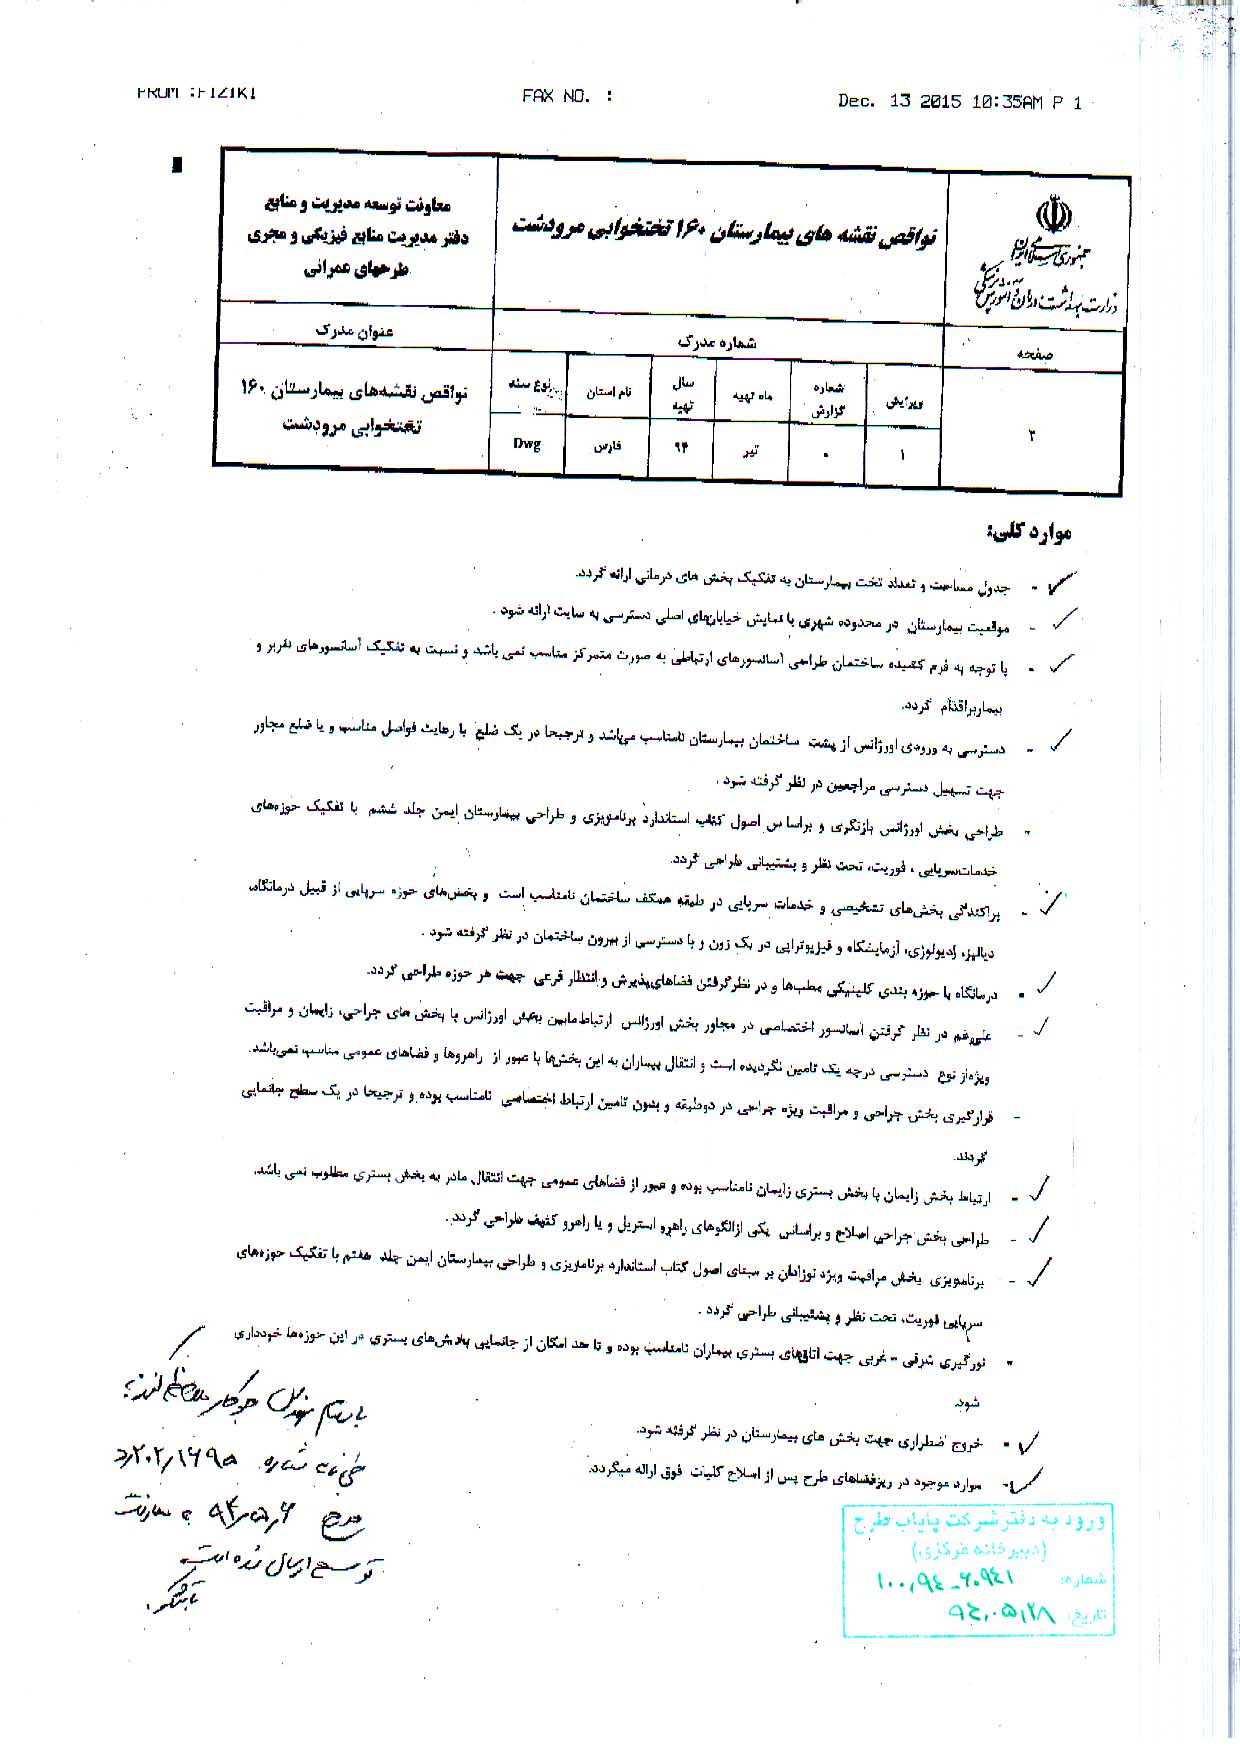 FROM :FIZIKI
FAX NO. :
Dec. 13 2015 10:35AM P 1
جمهوری اسلامی ایران
وزارت بهداشت، درمان و آموزش پزشکی
نواقص نقشه های بیمارستان ۱۶۰ تختخوابی مرودشت
معاونت توسعه مدیریت و منابع
دفتر مدیریت منابع فیزیکی و مجری
طرحهای عمرانی
صفحه
شماره مدرک
عنوان مدرک
ویرایش
شماره گزارش
ماه تهیه
سال تهیه
نام استان
نوع سند
نواقص نقشه‌های بیمارستان ۱۶۰
تختخوابی مرودشت
۲
۱
۰
تیر
۹۴
فارس
Dwg
موارد کلی:
- جدول مساحت و تعداد تخت بیمارستان به تفکیک بخش های درمانی ارائه گردد.
- موقعیت بیمارستان در محدوده شهری با نمایش خیابانهای اصلی دسترسی به سایت ارائه شود .
- با توجه به فرم کشیده ساختمان طراحی آسانسورهای ارتباطی به صورت متمرکز مناسب نمی باشد و نسبت به تفکیک آسانسورهای نفربر و
بیماربر اقدام گردد.
- دسترسی به ورودی اورژانس از پشت ساختمان بیمارستان نامناسب می‌باشد و ترجیحا در یک ضلع با رعایت فواصل مناسب و یا ضلع مجاور
جهت تسهیل دسترسی مراجعین در نظر گرفته شود .
- طراحی بخش اورژانس بازنگری و براساس اصول کتاب استاندارد برنامه‌ریزی و طراحی بیمارستان ایمن جلد ششم با تفکیک حوزه‌های
خدمات‌سرپایی ، فوریت، تحت نظر و پشتیبانی طراحی گردد.
- پراکندگی بخش‌های تشخیصی و خدمات سرپایی در طبقه همکف ساختمان نامناسب است و بخش‌های حوزه سرپایی از قبیل درمانگاه،
دیالیز، رادیولوژی، آزمایشگاه و فیزیوتراپی در یک زون و با دسترسی از بیرون ساختمان در نظر گرفته شود .
- درمانگاه با حوزه بندی کلینیکی مطب‌ها و در نظر گرفتن فضاهای‌پذیرش و انتظار فرعی جهت هر حوزه طراحی گردد.
- علی‌رغم در نظر گرفتن آسانسور اختصاصی در مجاور بخش اورژانس ارتباط مابین بخش اورژانس با بخش های جراحی، زایمان و مراقبت
ویژه‌از نوع دسترسی درجه یک تامین نگردیده است و انتقال بیماران به این بخش‌ها با عبور از راهروها و فضاهای عمومی مناسب نمی‌باشد.
- قرارگیری بخش جراحی و مراقبت ویژه جراحی در دوطبقه و بدون تامین ارتباط اختصاصی نامناسب بوده و ترجیحا در یک سطح جانمایی
گردند.
- ارتباط بخش زایمان با بخش بستری زایمان نامناسب بوده و عبور از فضاهای عمومی جهت انتقال مادر به بخش بستری مطلوب نمی باشد.
- طراحی بخش جراحی اصلاح و براساس یکی ازالگوهای راهرو استریل و یا راهرو کثیف طراحی گردد.
- برنامه‌ریزی بخش مراقبت ویژه نوزادان بر مبنای اصول کتاب استاندارد برنامه‌ریزی و طراحی بیمارستان ایمن جلد هفتم با تفکیک حوزه‌های
سرپایی فوریت، تحت نظر و پشتیبانی طراحی گردد .
- نورگیری شرقی - غربی جهت اتاقهای بستری بیماران نامناسب بوده و تا حد امکان از جانمایی بخش‌های بستری در این حوزه‌ها خودداری
شود.
- خروج اضطراری جهت بخش های بیمارستان در نظر گرفته شود.
- موارد موجود در ریزفضاهای طرح پس از اصلاح کلیات فوق ارائه میگردد.
طی نامه شماره
مورخ ۹۴/۵/۶ به معاونت
توسعه ارسال شده است
باتشکر.
ورود به دفتر شرکت پایاب طرح
(دبیرخانه مرکزی)
شماره: ۱۰۰,۹۴-۶۰۹۴۱
تاریخ: ۹۴,۰۵,۲۸